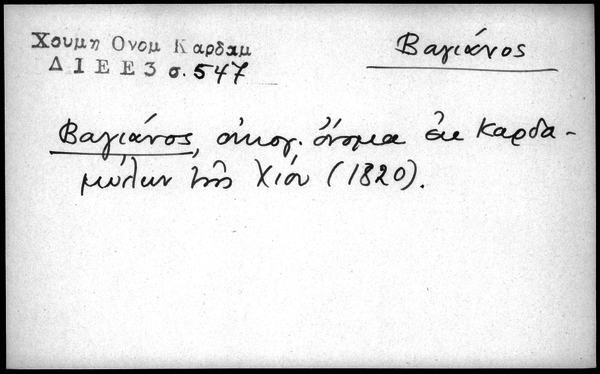 Χουμη Ονομ Καρδαμ
Δ Ι Ε Ε 3 σ. 547
Βαγιάνος
Βαγιάνος, οἰκογ. ὄνομα ἐκ Καρδα-
μύλων τῆς Χίου (1820).